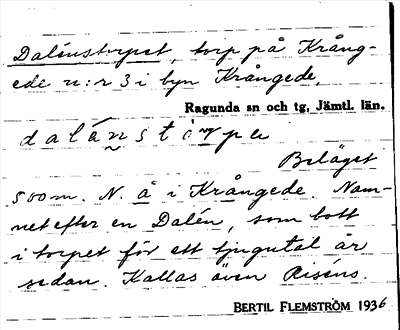 Dalénstorpet, torp på Krång-
ede n:r 3 i byn Krångede,
Ragunda sn och tg, Jämtl. län.
Beläget
500 m. N. å i Krångede. Nam-
net efter en Dalén, som bott
i torpet för ett tjugutal år
sedan. Kallas även Riséns.
BERTIL FLEMSTRÖM 1936